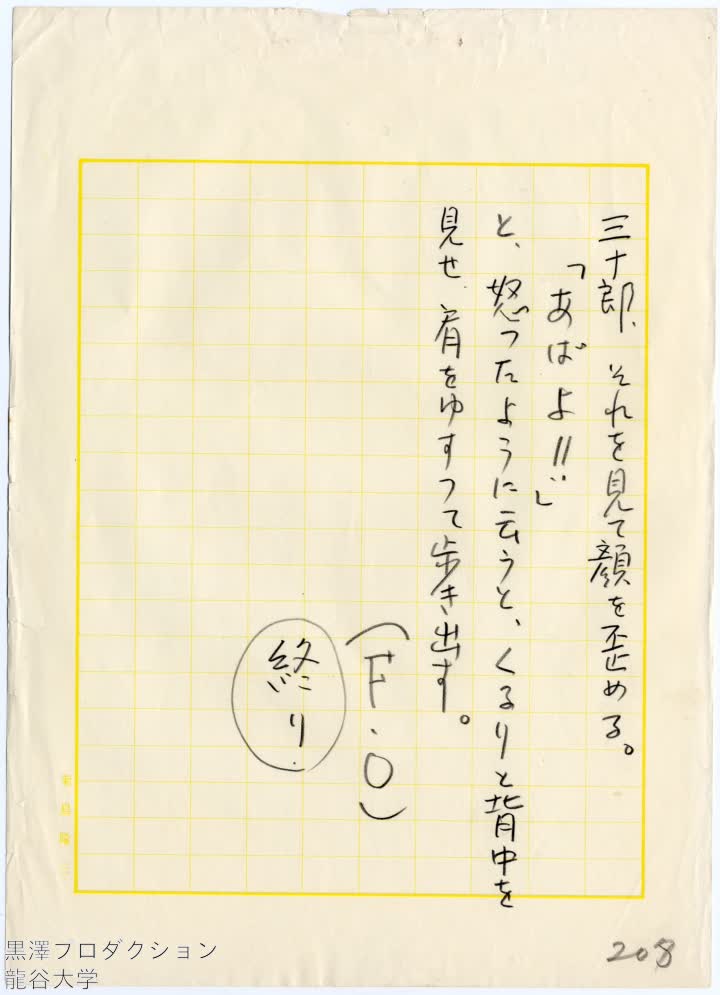 三十郎、それを見て顔を歪める。
「あばよ!!」
と、怒ったように云うと、くるりと背中を
見せ、肩をゆすって歩き出す。
(F・O)
終り
208
黒澤プロダクション
龍谷大学